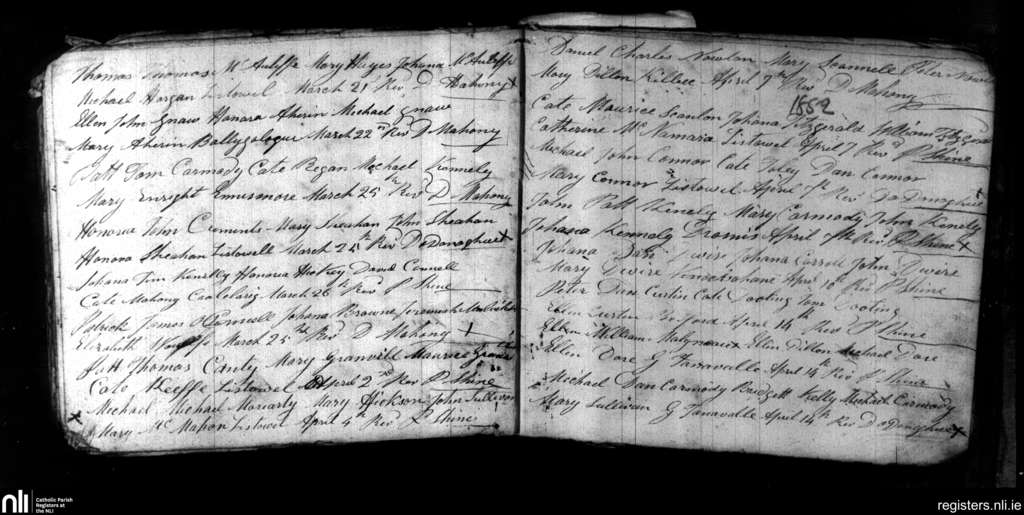 Thomas Thomas McAuliffe Mary Hayes Johana McAuliffe
Michael Horgan Listowel March 21 Revd D Mahony x
Ellen John Gnaw Honora Aherin Michael Gnaw
Mary Aherin Ballygologue March 22nd Revd D Mahony
Patt Tom Carmody Cate Regan Michael Kennely
Mary Enright Ennismore March 25th Revd D Mahony
Honora John Clements Mary Sheahan John Sheahan
Honora Sheahan Listowell March 25th Revd D ODonaghue x
Johana Tim Honora Hickey David Connell
Cate Mahony March 26th Revd P Shine
Patrick James Johana Browne
Elizabeth March 25th Revd D Mahony x
Patt Thomas Canty Mary Granvill Maurice
Cate Keeffe Listowel April 2nd Revd P Shine
Michael Michael Moriarty Mary Hickson John Sullivan
x Mary McMahon Listowel April 4th Revd P Shine
Daniel Charles Newton Mary Scannell Peter
Mary Dillon Killacu April 7th Revd D Mahony
1852
Cate Maurice Scanlon Johana Fitzgerald William Fitzgerald
Catherine McNamara Listowel April 7 Revd P Shine
Michael John Connor Cate Foley Dan Connor
Mary Connor Listowel April 7th Revd D ODonaghue
John Patt Kenely Mary Carmody John Kenely
Johana Kennaly Dromin April 9th Revd P Shine x
Johana Dan Dwire Johana Carroll John Dwire
Mary Dwire April 10 Revd P Shine
Peter Dan Curtin Cate Dooling Tom Dooling
Curtin April 14th Revd P Shine
Ellen William Molyneaux Ellen Dillon Michael Dore
Ellen Dore G Tanavalla April 14 Revd P Shine
Michael Dan Carmody Bridgett Kelly Michael Carmody
Mary Sullivan G Tanavalla April 14th Revd D ODonaghue x
nli
Catholic Parish
Registers at
the NLI
registers.nli.ie